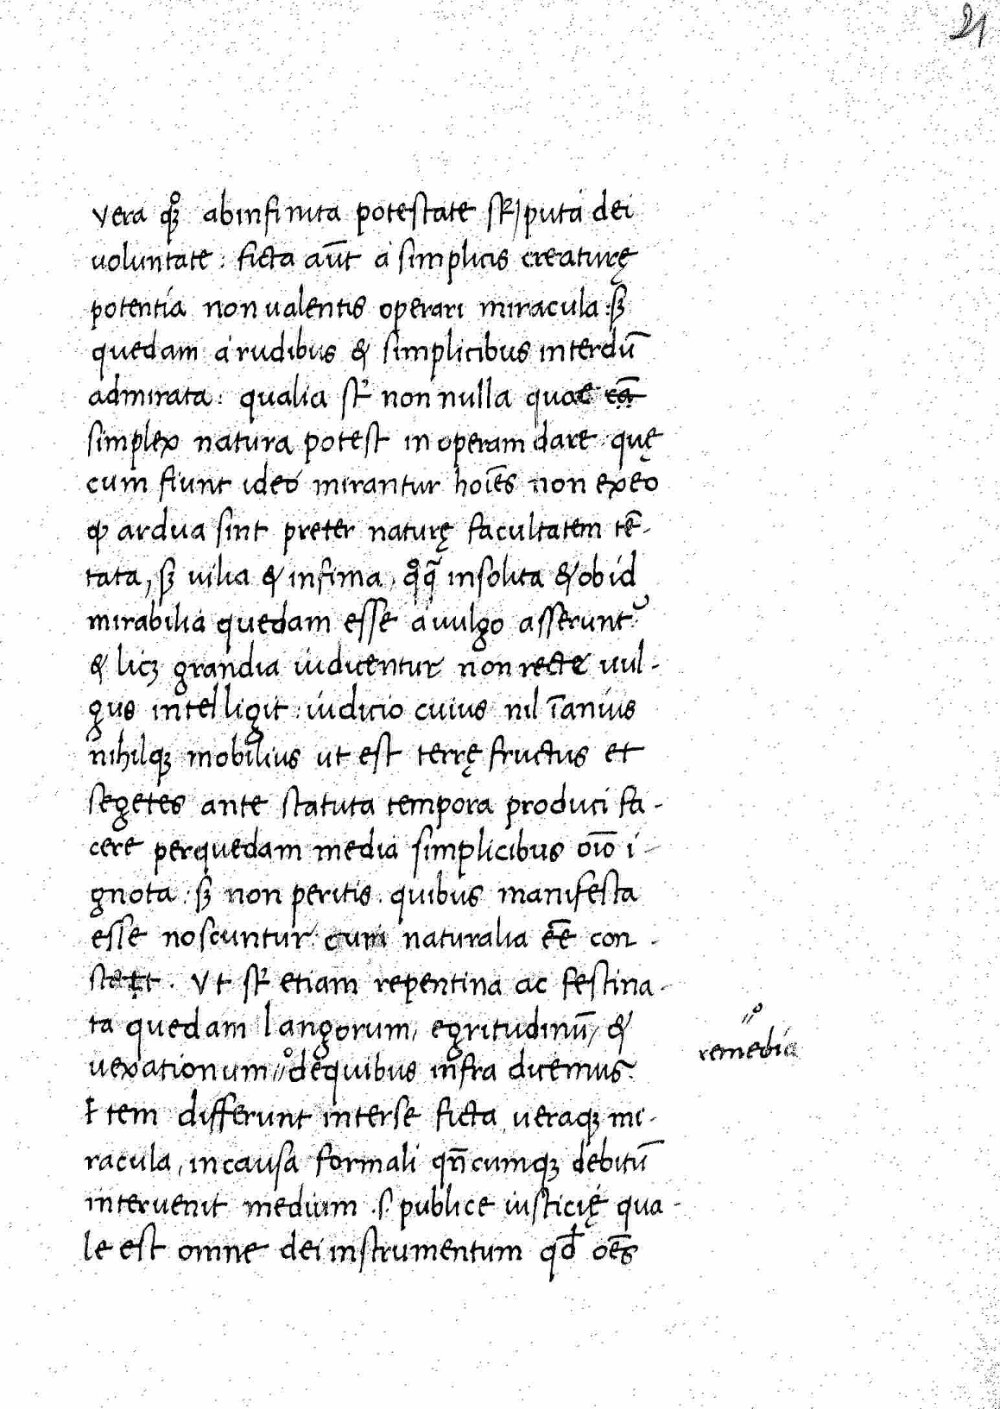 21
vera qꝫ ab infinita potestate sꝫ puta dei
uoluntate: ficta aūt a simplicis creaturę
potentia non ualentis operari miracula: sꝫ
quedam a rudibus & simplicibus interdū
admirata: qualia st non nulla quae eā
simplex natura potest in operam dare quę
cum fiunt ideo mirantur hoīes non ex eo
ꝙ ardua sint preter naturę facultatem tē-
tata, sꝫ uilia & infima, insolita & ob id
mirabilia quedam esse a uulgo asserunt
& licꝫ grandia iudicentur non recte uul-
gus intelligit: iudicio cuius nil īanius
nihilqꝫ mobilius ut est terrę fructus et
segetes ante statuta tempora produci fa-
cere per quedam media simplicibus oīo i-
gnota: sꝫ non peritis. quibus manifesta
esse noscuntur cum naturalia eē con-
stat. Vt st etiam repentina ac festina-
ta quedam langorum, egritudinū, &
uexationum, de quibus infra dicemus.
remedia
Item differunt inter se ficta ueraqꝫ mi-
racula, in causa formali qn̄cumqꝫ debitū
interuenit medium .s. publice iusticię qua-
le est omne dei instrumentum qđ oēs